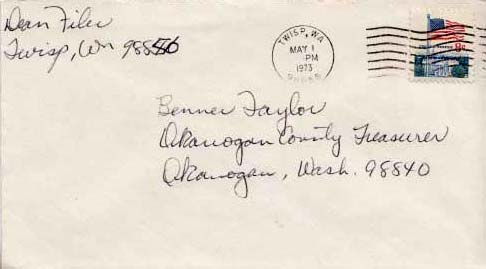 Dean Filer
Twisp, Wn 98856
TWISP, WA
MAY 1
PM
1973
98856
8c
Benner Taylor
Okanogan County Treasurer
Okanogan, Wash. 98840